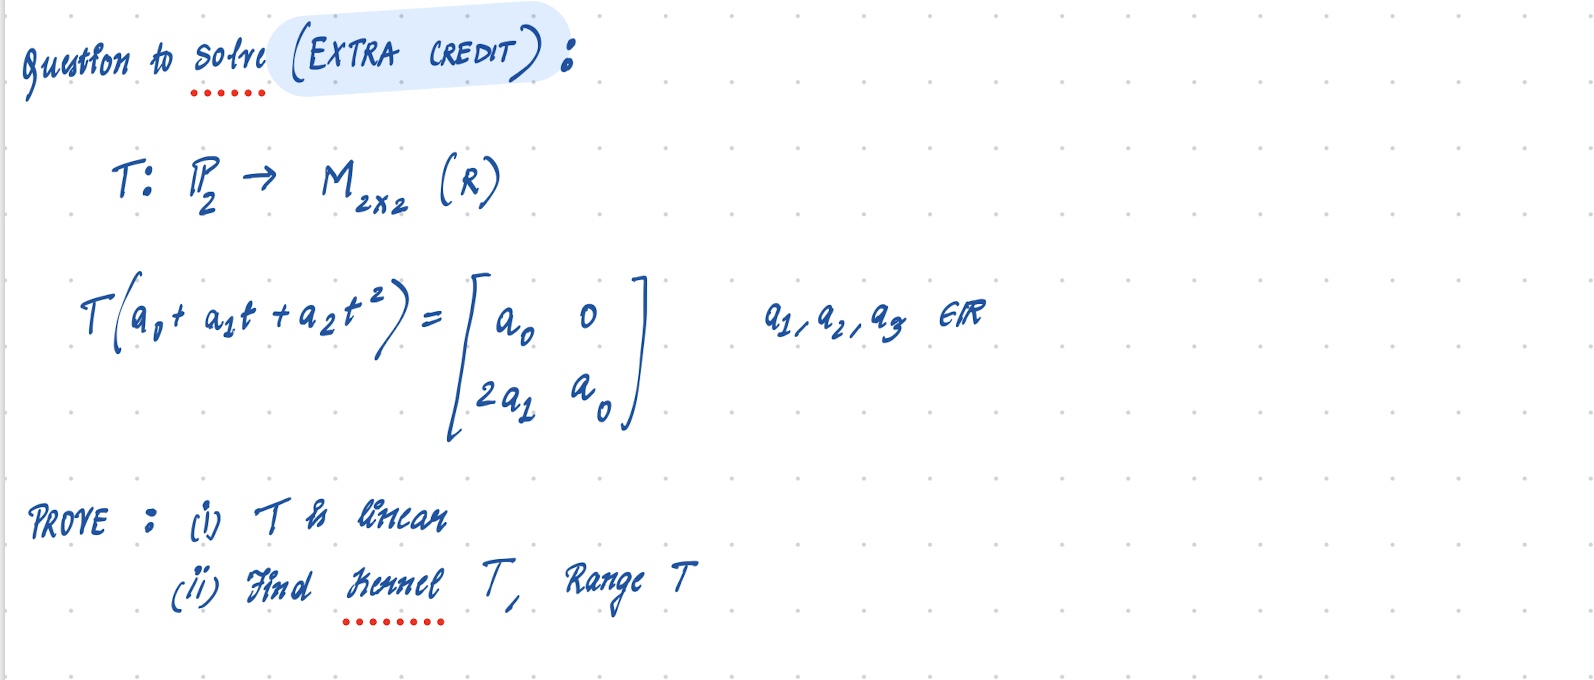 Question to solve (EXTRA CREDIT) :
T: ℙ₂ → M₂ₓ₂ (R)
T(a₀ + a₁t + a₂t²) = [a₀ 0     a₁, a₂, a₃ ∈ℝ
2a₁ a₀]
PROVE : (i) T is linear
(ii) Find Kernel T, Range T